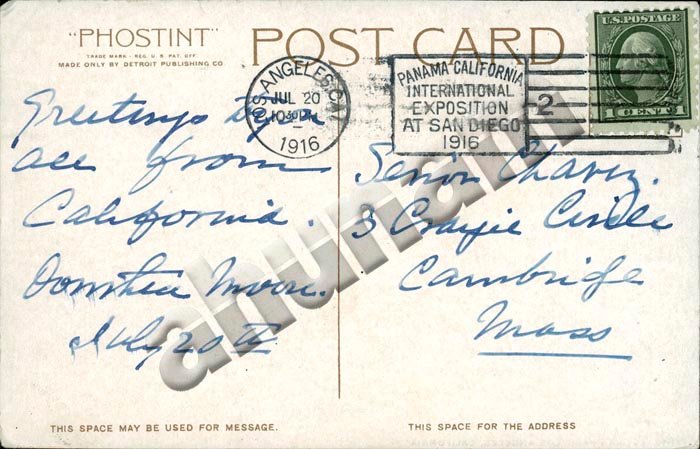 "PHOSTINT"
TRADE MARK · REG. U.S. PAT. OFF.
MADE ONLY BY DETROIT PUBLISHING CO.
POST CARD
U.S. POSTAGE
1 CENT 1
LOS ANGELES, CAL
JUL 20
10 30 PM
1916
PANAMA CALIFORNIA
INTERNATIONAL
EXPOSITION
AT SAN DIEGO
1916
2
Greetings
all from
California.
Dorothea Moore.
July 20th
Chavez.
3 Craigie Circle
Cambridge
Mass
ahunani
THIS SPACE MAY BE USED FOR MESSAGE.
THIS SPACE FOR THE ADDRESS